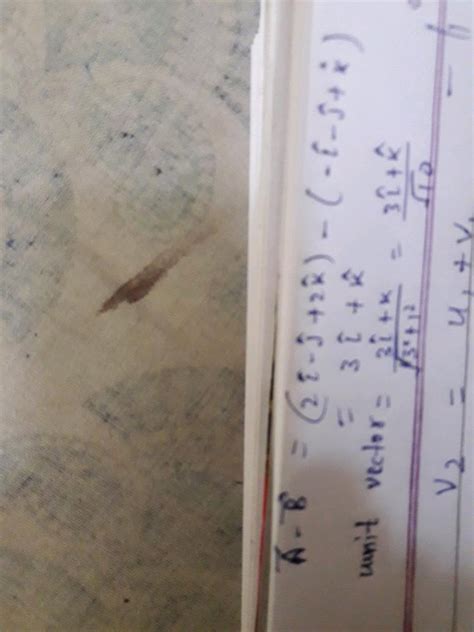 A⃗ - B⃗ = (2î - ĵ + 2k̂) - (-î - ĵ + k̂)
= 3î + k̂
unit vector = 3î + k / √3² + 1² = 3î + k̂ / √10
V₂ = u₁ + v